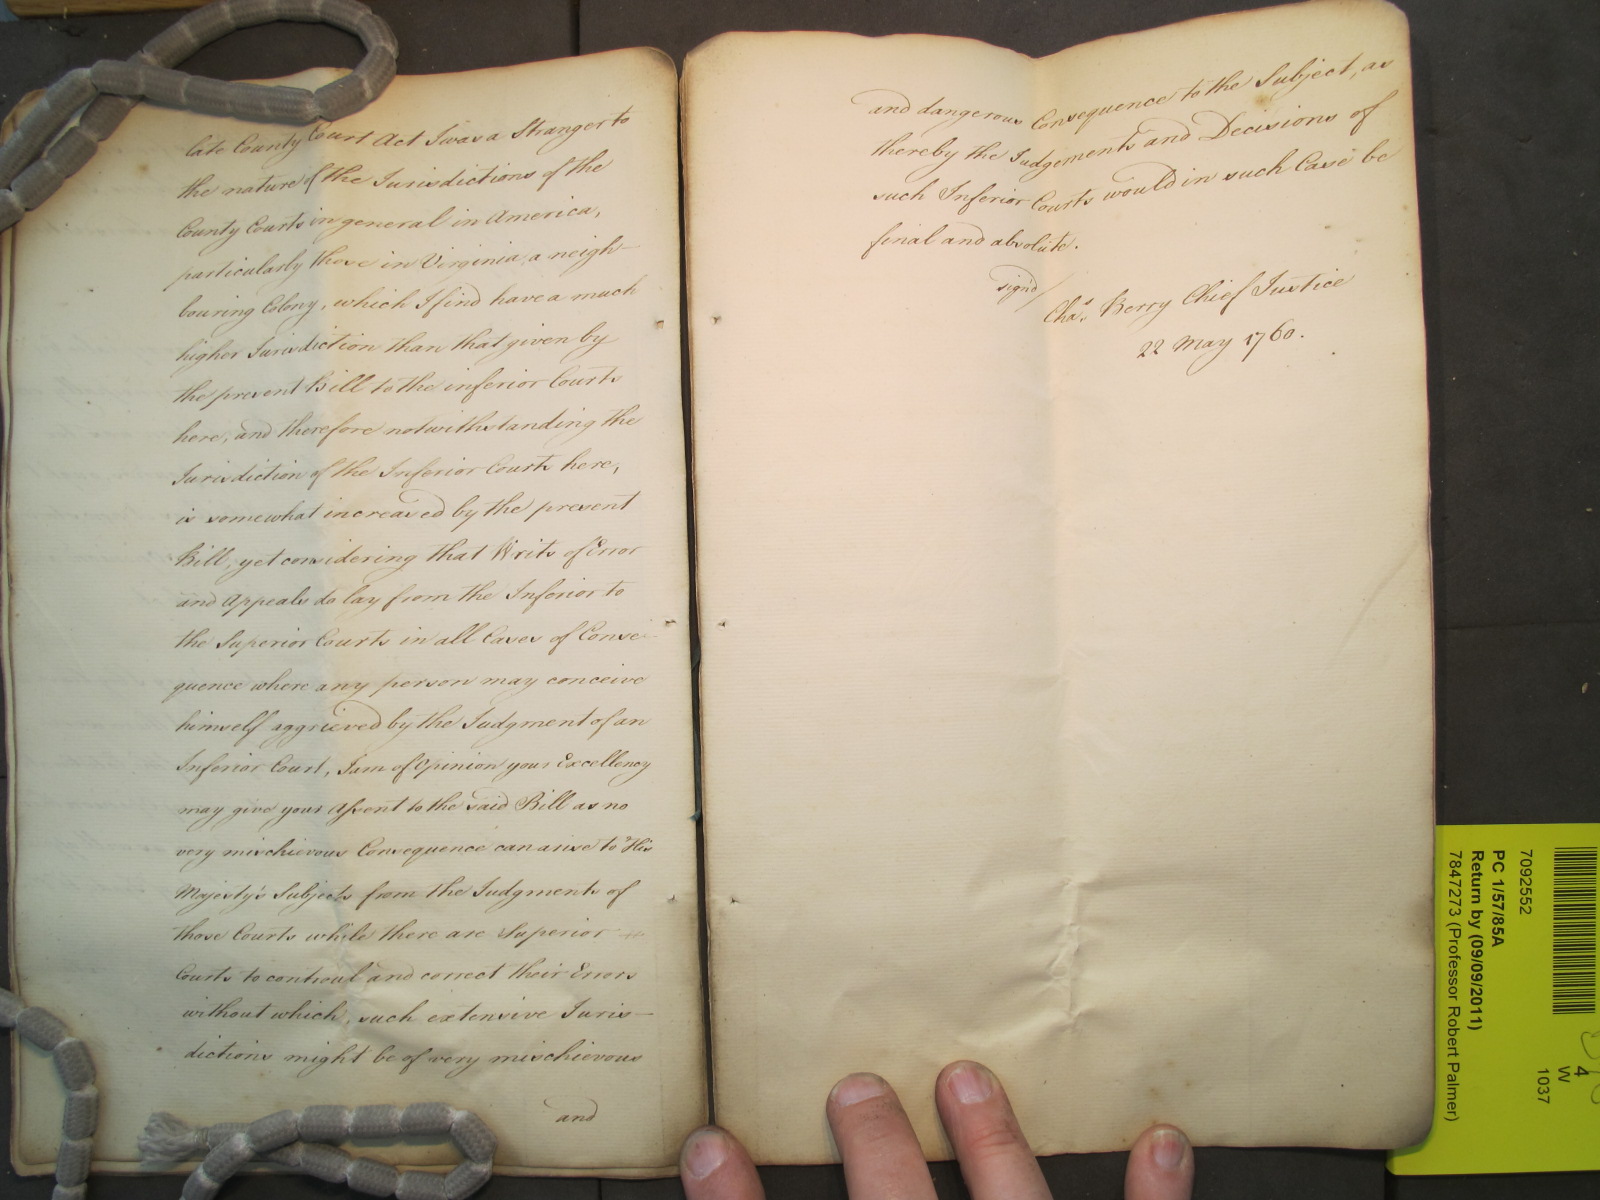 late County Court Act I was a Stranger to
the nature of the Jurisdictions of the
County Courts in general in America,
particularly those in Virginia, a neigh-
bouring Colony, which I find have a much
higher Jurisdiction than that given by
the present Bill to the inferior Courts
here, and therefore notwithstanding the
Jurisdiction of the Inferior Courts here,
is somewhat increased by the present
Bill, yet considering that Writs of Error
and Appeals do lay from the Inferior to
the Superior Courts in all Cases of Conse-
quence where any person may conceive
himself aggrieved by the Judgment of an
Inferior Court, I am of Opinion your Excellency
may give your Assent to the said Bill as no
very mischievous Consequence can arise to His
Majesty's Subjects from the Judgments of
those Courts while there are Superior
Courts to controul and correct their Errors
without which, such extensive Juris-
dictions might be of very mischievous
and
and dangerous Consequence to the Subject, as
thereby the Judgements and Decisions of
such Inferior Courts would in such Case be
final and absolute.
signd/
Chas. Berry Chief Justice
22 May 1760.
7092552
PC 1/57/85A
Return by (09/09/2011)
7847273 (Professor Robert Palmer)
4
W
1037